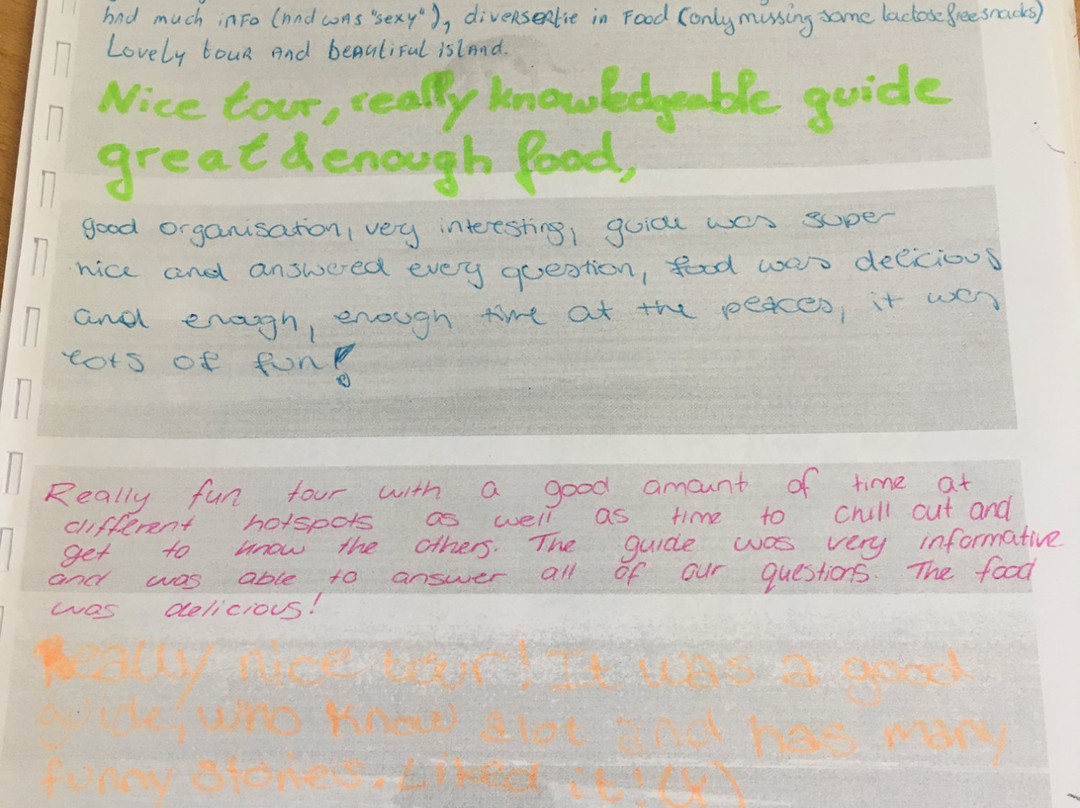 had much info (and was "sexy"), diversertie in Food (only missing some lactose free snacks)
Lovely tour and beautiful island.
Nice tour, really knowledgeable guide
great & enough food,
good organisation, very interesting, guide was super
nice and answered every question, food was delicious
and enough, enough time at the peaces, it was
lots of fun!
Really fun tour with a good amount of time at
different hotspots as well as time to chill out and
get to know the others. The guide was very informative
and was able to answer all of our questions. The food
was delicious!
Really nice tour! It was a good
guide, who know a lot and has many
funny stories. Liked it! (Y)